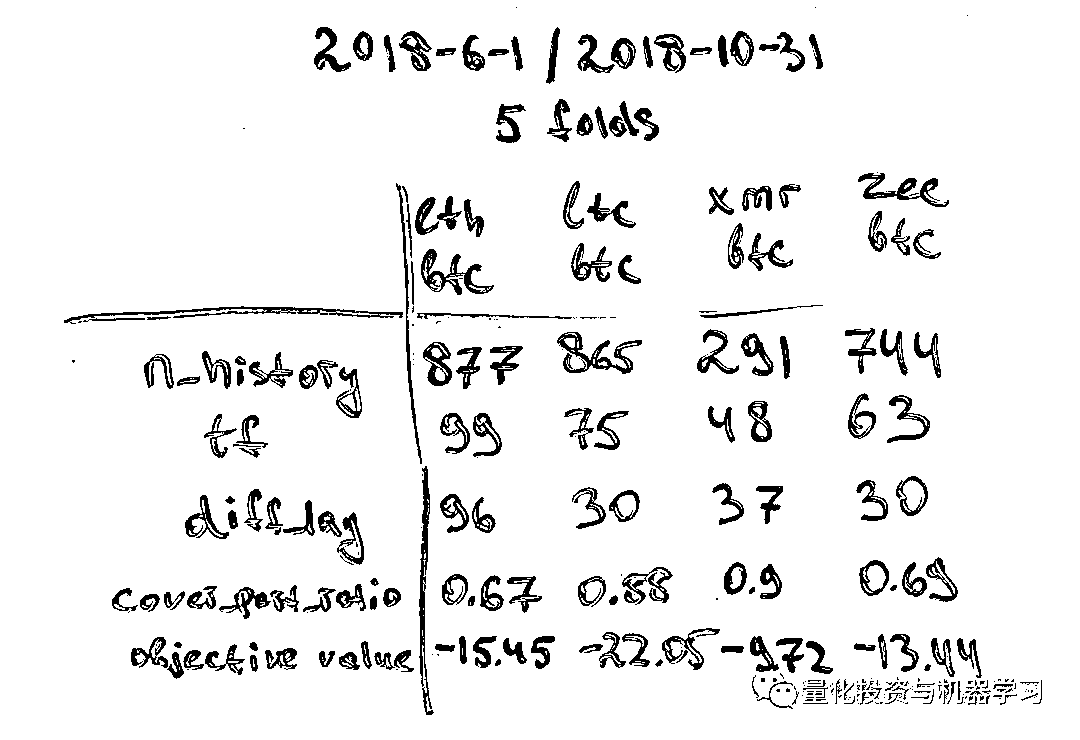 2018-6-1 / 2018-10-31
5 folds
eth ltc xmr zec
btc btc btc btc
n_history 877 865 291 744
tf 99 75 48 63
diff_lag 96 30 37 30
cover_part_ratio 0.67 0.88 0.9 0.69
objective value -15.45 -22.05 -9.72 -13.44
量化投资与机器学习